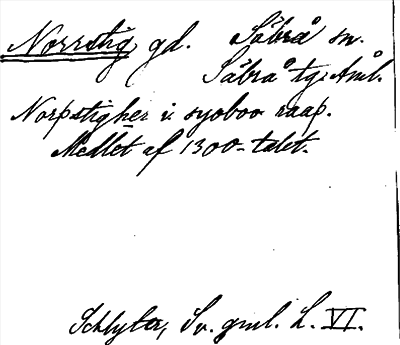 Norrstig gd. Säbrå sn.
Säbrå tg. Ånl.
Norpstigher i syoboo raap.
Medlet af 1300-talet.
Schlyter, Sv. gml. L. VI.